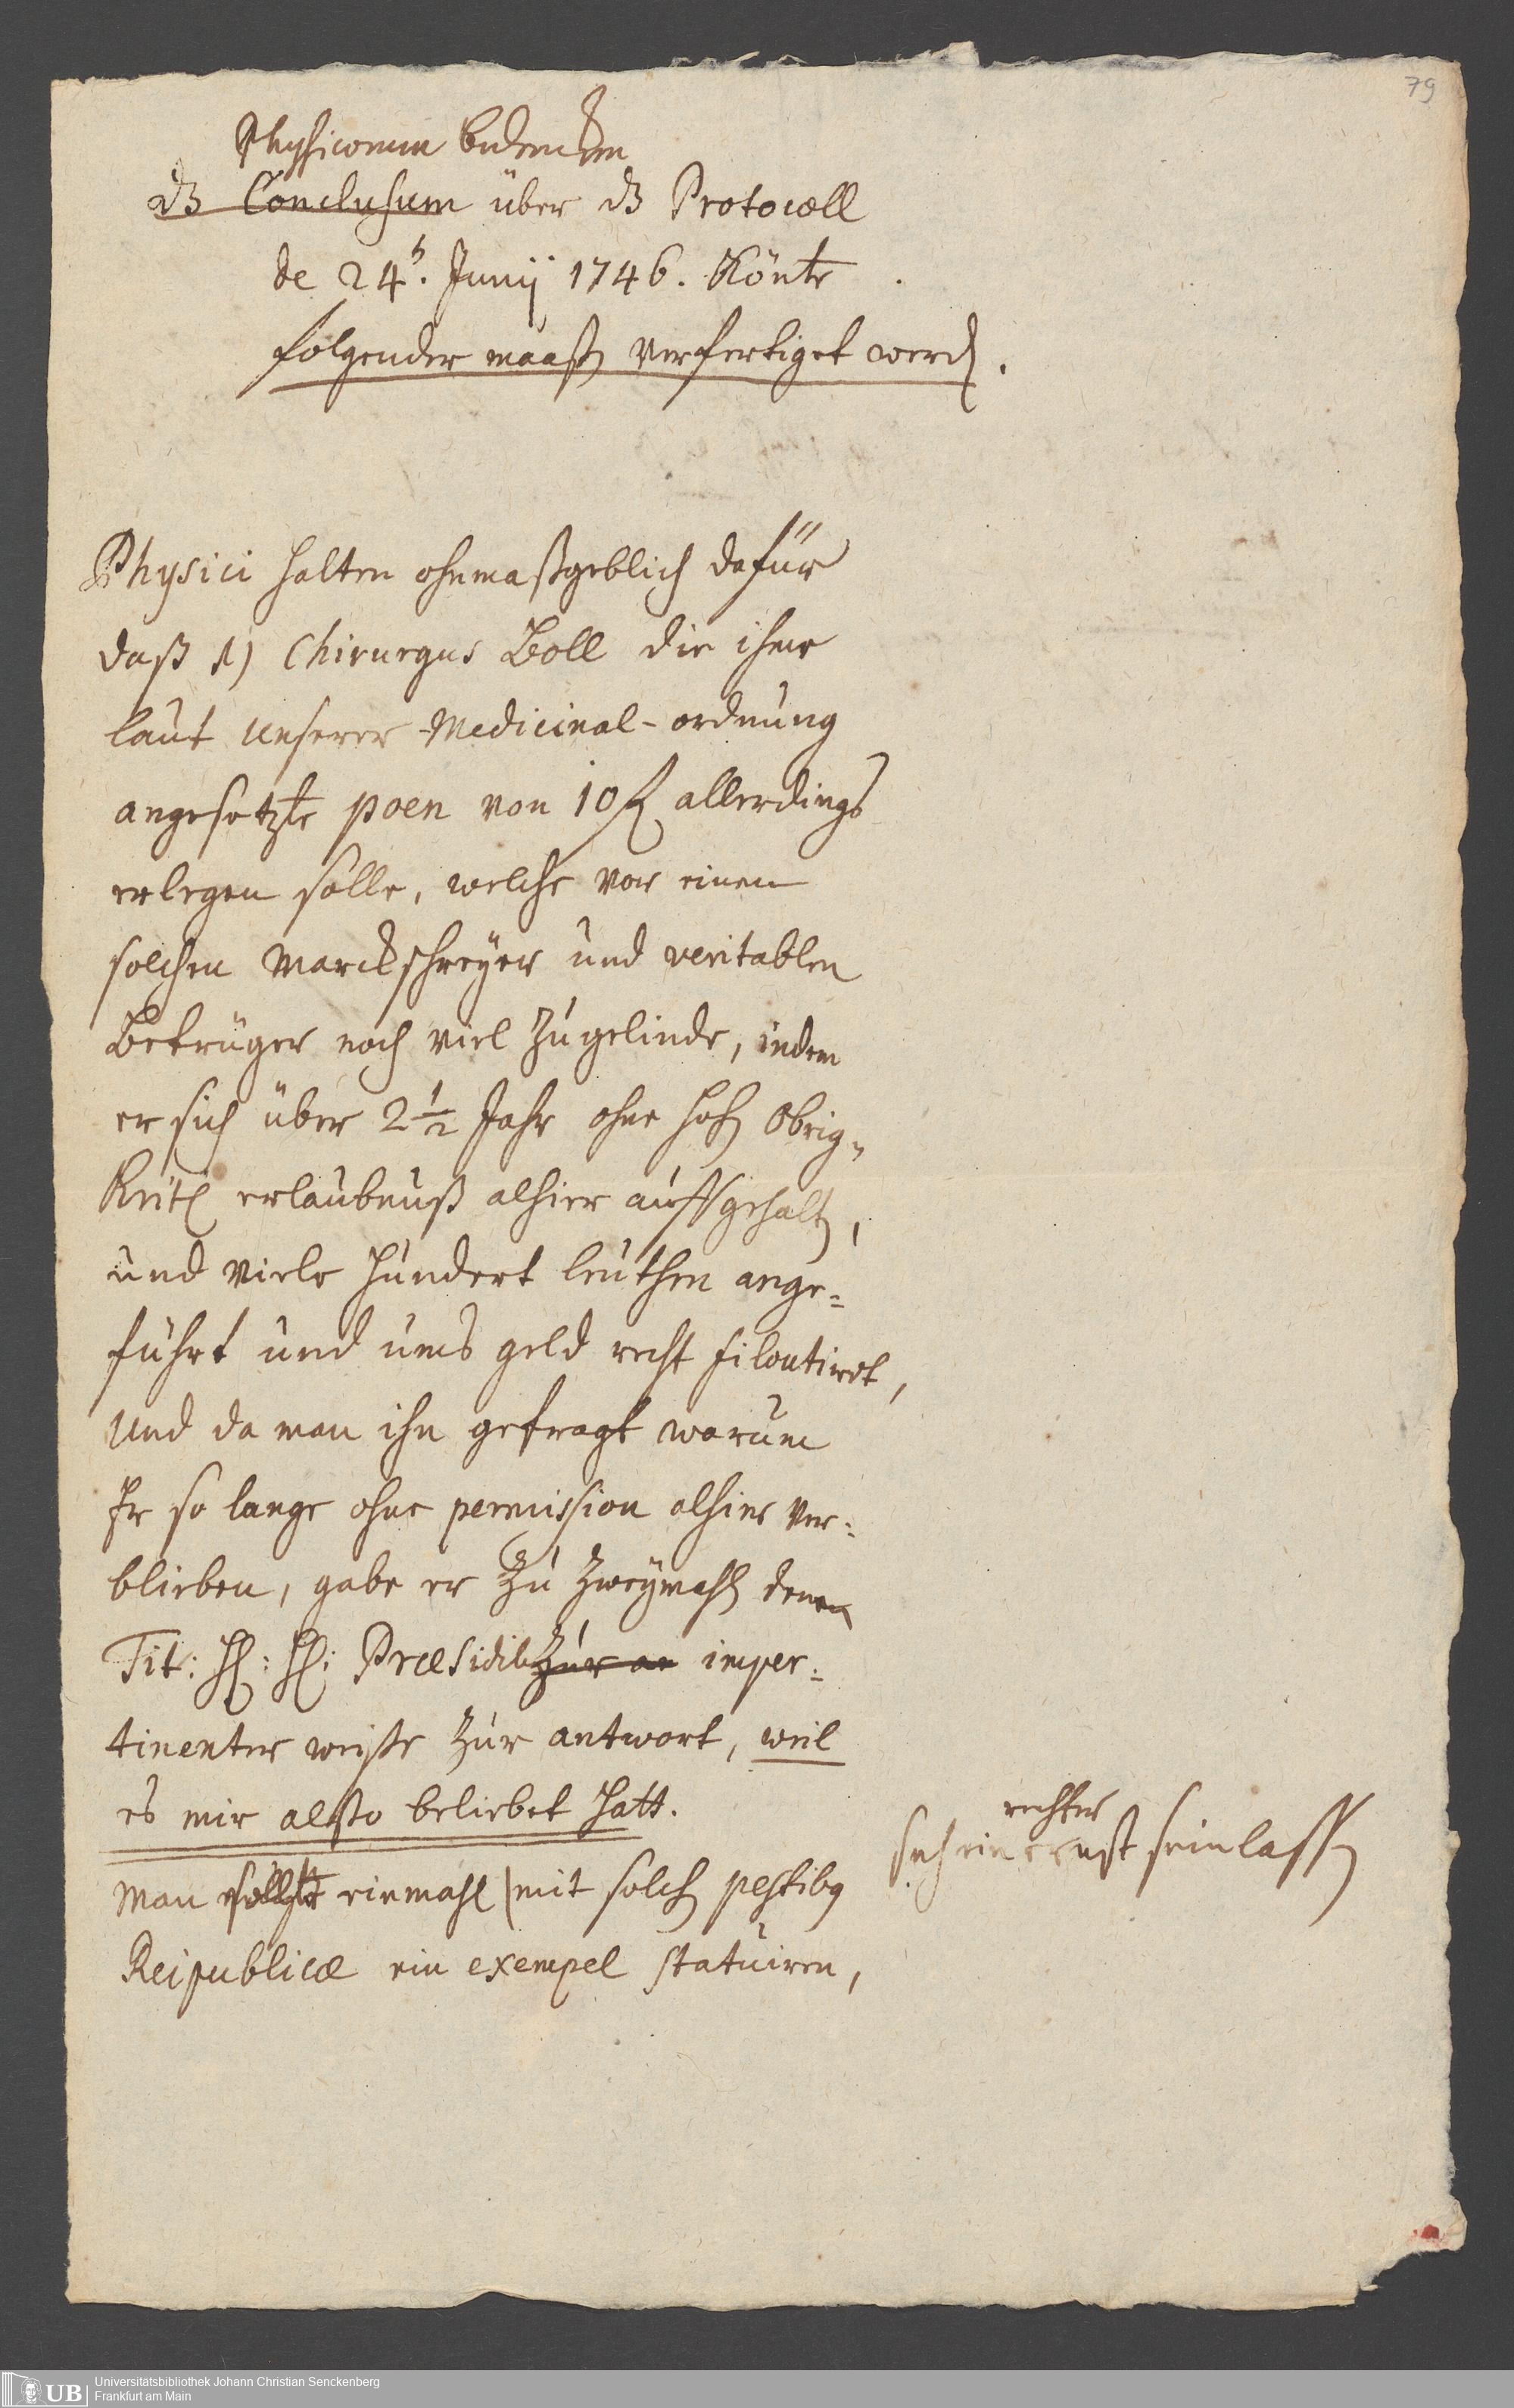 79
Physicorum bedencken
dz Conclusum über dz Protocoll
de 24t. Junij 1746. Könte
folgender maaßen verfertiget werden.
Physici halten ohnmaßgeblich dafür
daß 1) Chirurgus Boll die ihme
laut unserer Medicinal-ordnung
angesetzte poen von 10 f allerdings
erlegen solle, welche vor einen
solchen Marckschreyer und veritablen
Betrüger noch viel zu gelinde, indem
er sich über 2 1/2 Jahr ohne hohe Obrig„
Keitl erlaubnuß alhier auffgehalten,
und viele hundert leuthen ange=
führt und ums geld recht filoutirdt,
Und da man ihn gefragt warum
Er so lange ohne permission alhier ver=
blieben, gabe er zu zweymahl denen
Tit: H: H: Præsidib zur an imper=
tinenter weiße zur antwort, weil
es mir alßo beliebet hatt.
rechter
sich ein ernst sein lassen
Man sollte einmahl mit solchen pestibus
Reipublicæ ein exempel statuiren,
UB Universitätsbibliothek Johann Christian Senckenberg
Frankfurt am Main